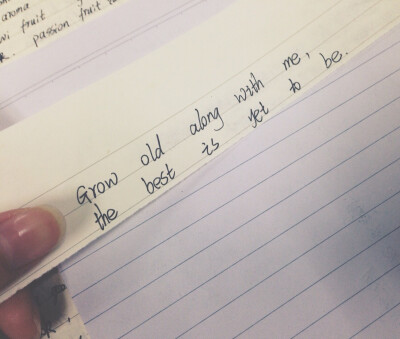 aroma
wi fruit
passion fruit
Grow old along with me,
the best is yet to be.